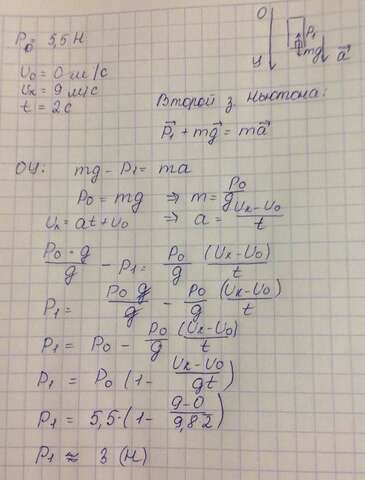 P₀ = 5,5 Н
υ₀ = 0 м/с
υₖ = 9 м/с
t = 2 с
O
P₁
mg
y
a⃗
Второй з. Ньютона:
P⃗₁ + mg⃗ = ma⃗
ОУ: mg - P₁ = ma
P₀ = mg ⇒ m = P₀/g
υₖ = at + υ₀ ⇒ a = (υₖ - υ₀)/t
P₀ · g/g - P₁ = P₀/g (υₖ - υ₀)/t
P₁ = P₀ g/g - P₀/g (υₖ - υ₀)/t
P₁ = P₀ - P₀/g (υₖ - υ₀)/t
P₁ = P₀ (1 - (υₖ - υ₀)/gt)
P₁ = 5,5 · (1 - (9 - 0)/9,8 2)
P₁ ≈ 3 (Н)